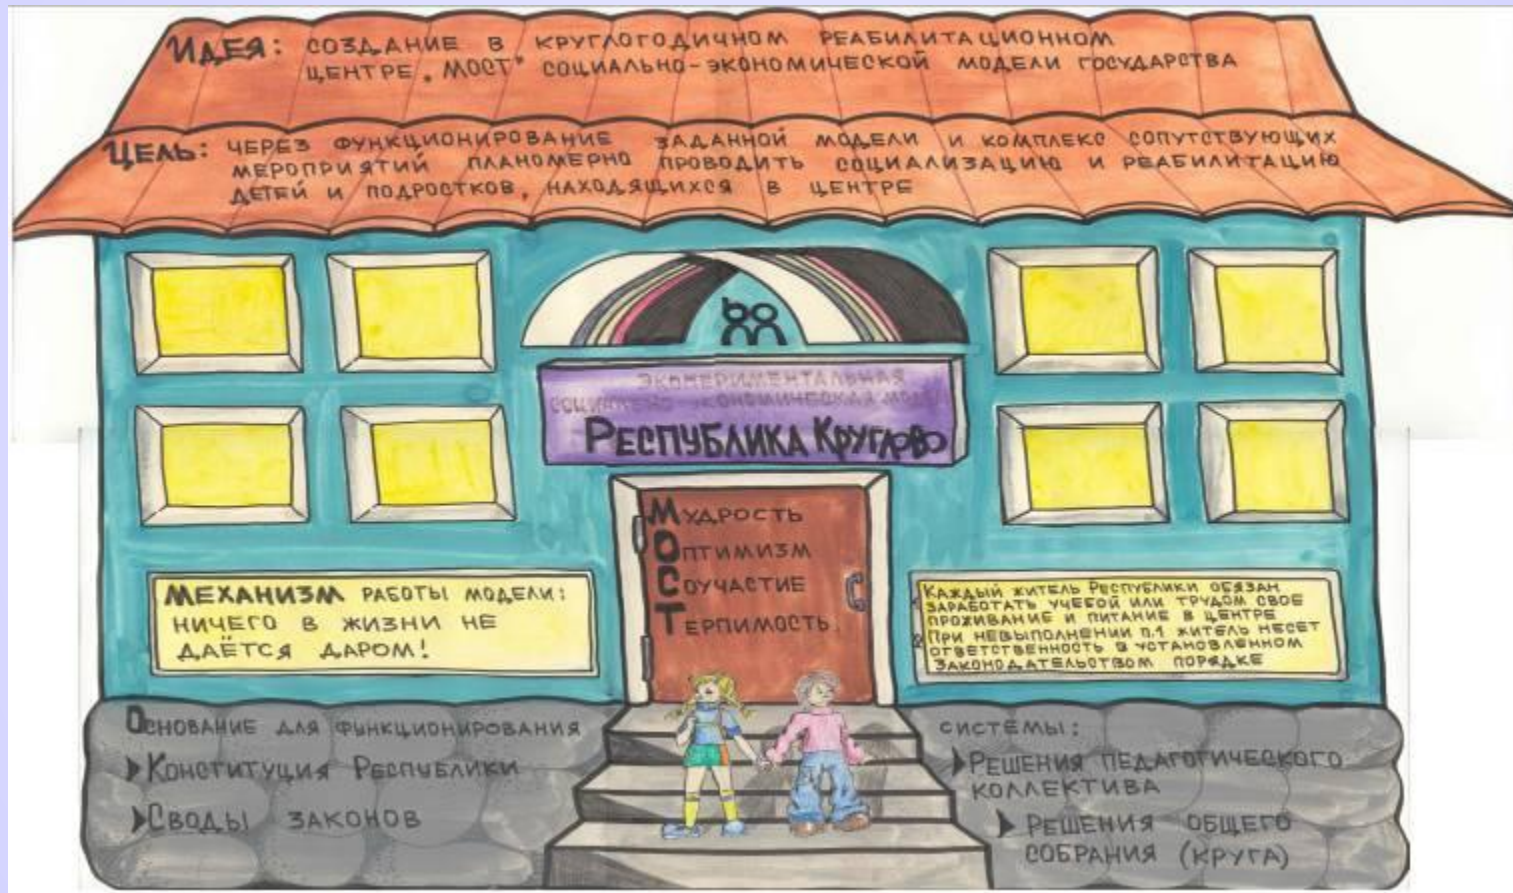 ИДЕЯ: СОЗДАНИЕ В КРУГЛОГОДИЧНОМ РЕАБИЛИТАЦИОННОМ
ЦЕНТРЕ „МОСТ" СОЦИАЛЬНО-ЭКОНОМИЧЕСКОЙ МОДЕЛИ ГОСУДАРСТВА
ЦЕЛЬ: ЧЕРЕЗ ФУНКЦИОНИРОВАНИЕ ЗАДАННОЙ МОДЕЛИ И КОМПЛЕКС СОПУТСТВУЮЩИХ
МЕРОПРИЯТИЙ ПЛАНОМЕРНО ПРОВОДИТЬ СОЦИАЛИЗАЦИЮ И РЕАБИЛИТАЦИЮ
ДЕТЕЙ И ПОДРОСТКОВ, НАХОДЯЩИХСЯ В ЦЕНТРЕ
ЭКСПЕРИМЕНТАЛЬНАЯ
СОЦИАЛЬНО ЭКОНОМИЧЕСКАЯ МОДЕЛЬ
РЕСПУБЛИКА КРУГЛОВО
МУДРОСТЬ
ОПТИМИЗМ
СОУЧАСТИЕ
ТЕРПИМОСТЬ
МЕХАНИЗМ РАБОТЫ МОДЕЛИ:
НИЧЕГО В ЖИЗНИ НЕ
ДАЁТСЯ ДАРОМ!
КАЖДЫЙ ЖИТЕЛЬ РЕСПУБЛИКИ ОБЯЗАН
ЗАРАБОТАТЬ УЧЕБОЙ ИЛИ ТРУДОМ СВОЕ
ПРОЖИВАНИЕ И ПИТАНИЕ В ЦЕНТРЕ
ПРИ НЕВЫПОЛНЕНИИ П.1 ЖИТЕЛЬ НЕСЕТ
ОТВЕТСТВЕННОСТЬ В УСТАНОВЛЕННОМ
ЗАКОНОДАТЕЛЬСТВОМ ПОРЯДКЕ
ОСНОВАНИЕ ДЛЯ ФУНКЦИОНИРОВАНИЯ
КОНСТИТУЦИЯ РЕСПУБЛИКИ
СВОДЫ ЗАКОНОВ
СИСТЕМЫ:
РЕШЕНИЯ ПЕДАГОГИЧЕСКОГО
КОЛЛЕКТИВА
РЕШЕНИЯ ОБЩЕГО
СОБРАНИЯ (КРУГА)